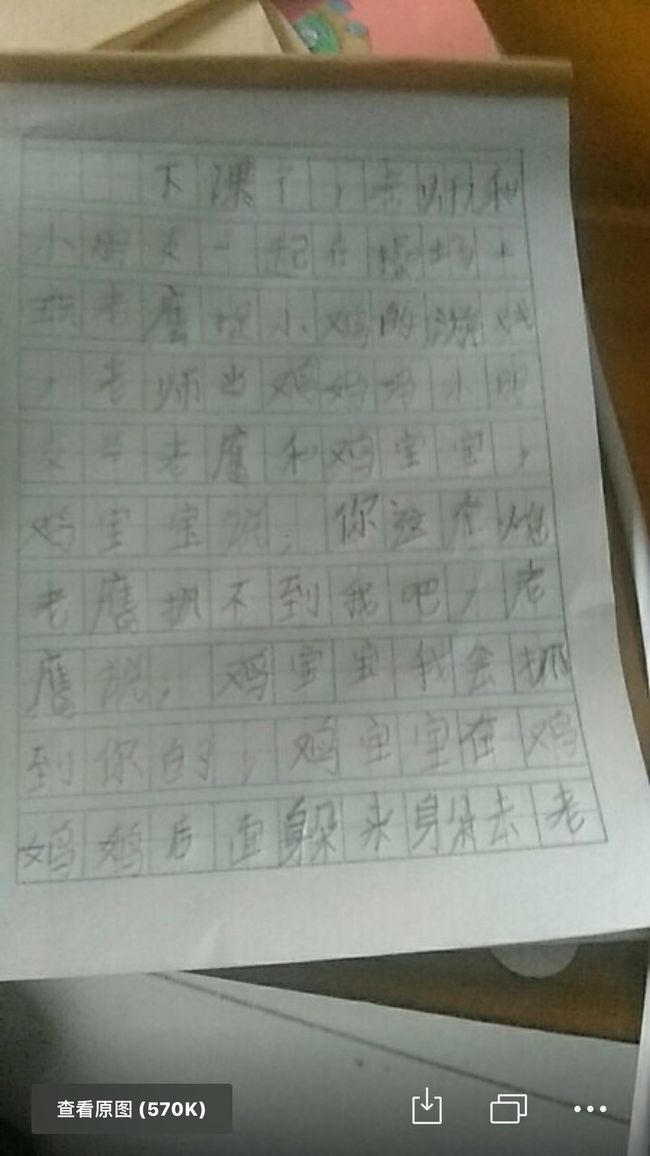 下课了，老师和
小朋友一起在操场上
玩老鹰捉小鸡的游戏
，老师当鸡妈妈小朋
友当老鹰和鸡宝宝，
鸡宝宝说：你这
老鹰抓不到我吧，老
鹰说，鸡宝宝我会抓
到你的，鸡宝宝在鸡
妈妈后面躲来躲去老
查看原图 (570K)